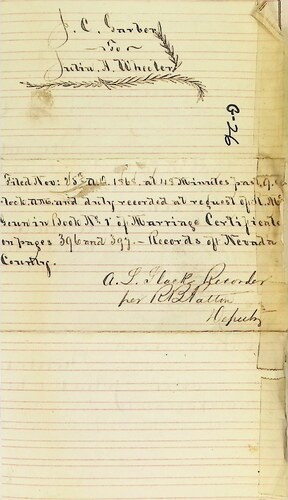 J. C. Garber
To
Julia A. Wheeler
G-26
Filed Nov. 25th A.D. 186 at 45 Minutes past 9, O'c
lock, A.M. and duly recorded at request of
in Book No. 1 of Marriage Certificate
on pages 396 and 397. - Records of Nevada
County.
Recorder
per R B Patton
Deputy